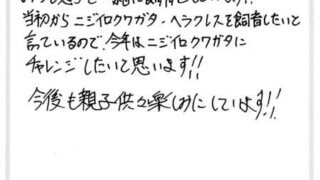 当初からニジイロクワガタ・ヘラクレスを飼育したいと
言っているので、今年はニジイロクワガタに
チャレンジしたいと思います!!
今後も親子供々楽しみにしています!!